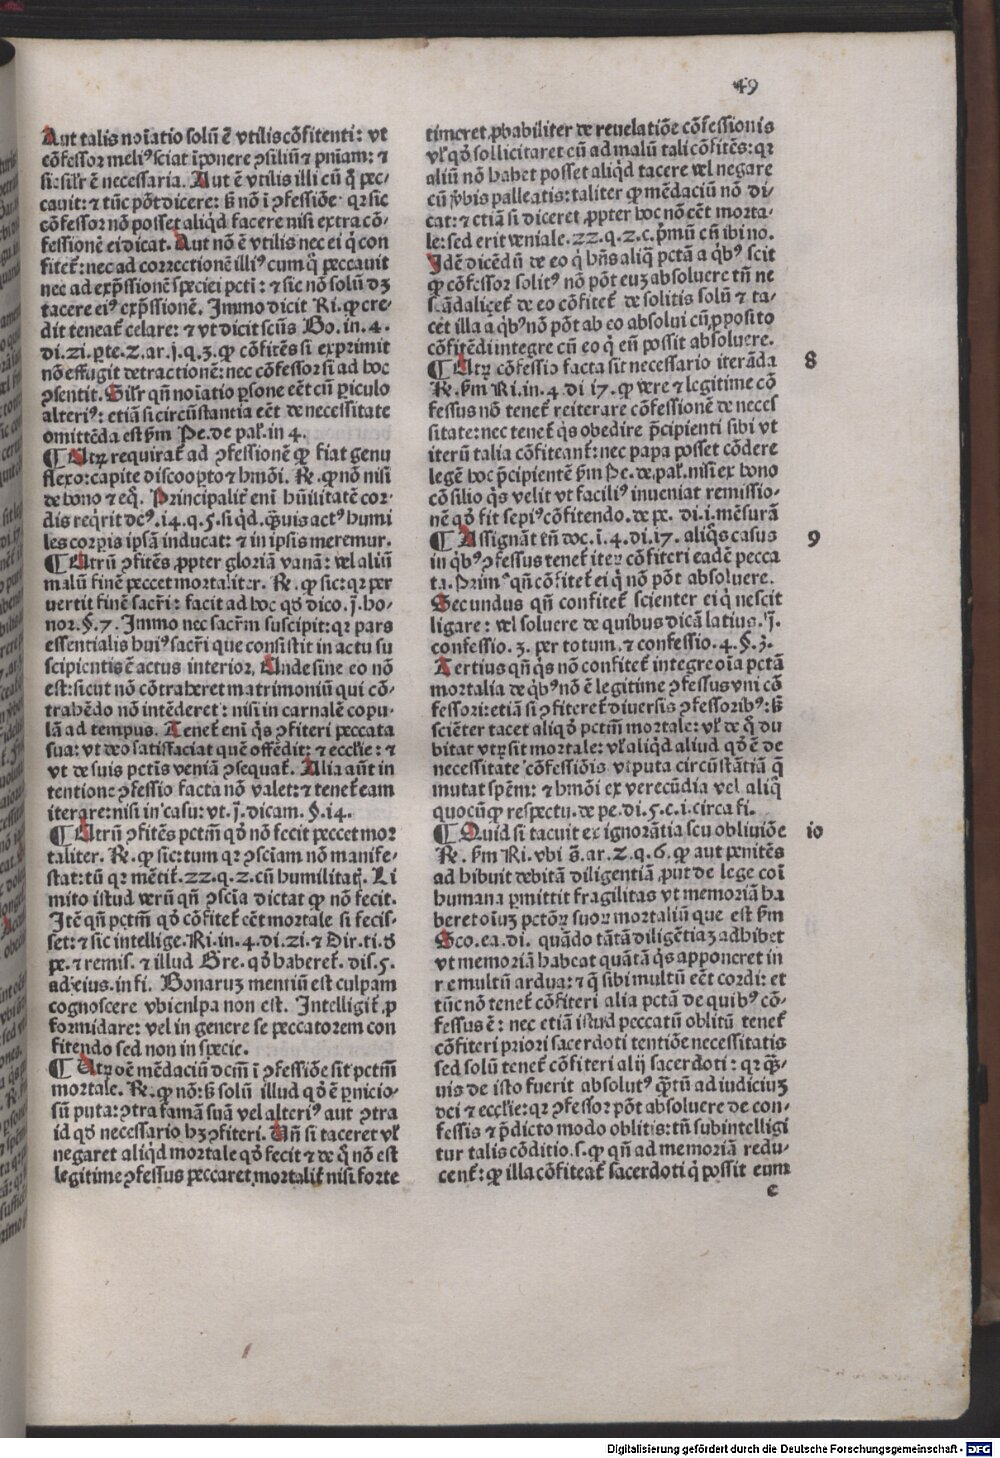 49
Aut talis noīatio solū ē vtilis cōfitenti: vt
cōfessor meliꝰ sciat īponere ꝯsiliū ⁊ pn̄iam: ⁊
si: sil'r ē necessaria. Aut ē vtilis illi cū q̄ pec-
cauit: ⁊ tūc pōt dicere: sꝫ nō ī ꝯfessiōe qꝛ sic
cōfessor nō posset aliqd facere nisi extra cō-
fessionē ei dicat. Aut nō ē vtilis nec ei q̇ con
fitet̄: nec ad correctionē illiꝰ cum q̄ peccauit
nec ad exp̄ssionē speciei pctī: ⁊ sic nō solū dꝫ
tacere eiꝰ exp̄ssionē. Immo dicit Ri. ꝙ cre-
dit teneat̄ celare: ⁊ vt dicit sctūs Bo. in. 4.
di. zi. ꝑte. 2. ar. j. q. 3. ꝙ cōfitēs si exprimit
nō effugit detractionē: nec cōfessor si ad hoc
ꝯsentit. Sil'r qn̄ noīatio ꝑsone eēt cū ꝑiculo
alteriꝰ: etiā si circūstantia eēt de necessitate
omittēda est ẜm Pe. de pal'. in 4.
¶ Utꝝ requirat̄ ad ꝯfessionē ꝙ fiat genu
flexo: capite discoopto ⁊ hmōi. R̄. ꝙ nō nisi
de bono ⁊ eq̄. Principalit̄ eni hūilitatē cor-
dis reqrit dcꝰ. i4. q. 5. si qd. q̄uis actꝰ humi
les corꝑis ipsā inducat: ⁊ in ipsis meremur.
¶ Utrū ꝯfitēs ꝓpter gloriā vanā: vel aliū
malū finē peccet mortaliter. R̄. ꝙ sic: qꝛ per
uertit finē sacr̄i: facit ad hoc qd dico. j. bo-
nor. §. 7. Immo nec sacr̄m suscipit: qꝛ pars
essentialis huiꝰ sacr̄i que consistit in actu su
scipientis ē actus interior. Unde sine eo nō
est: sicut nō cōtraheret matrimoniū qui cō-
trahēdo nō intēderet: nisi in carnalē copu-
lā ad tempus. Tenet̄ eni q̇s ꝯfiteri peccata
sua: vt deo satisfaciat quē offēdit: ⁊ eccl'ie: ⁊
vt de suis pctīs veniā ꝯsequat̄. Alia aūt in
tentione ꝯfessio facta nō valet: ⁊ tenet̄ eam
iterare: nisi in casu: vt. j. dicam. §. i4.
¶ Utrū ꝯfitēs pctm̄ qd nō fecit peccet mor
taliter. R̄. ꝙ sic: tum qꝛ ꝯsciam nō manife-
stat: tū qꝛ mētit̄. 22. q. 2. cū humilitatꝫ. Li
mito istud verū qn̄ ꝯscīa dictat ꝙ nō fecit.
Itē qn̄ pctm̄ qd cōfitet̄ eēt mortale si fecis-
set: ⁊ sic intellige. Ri. in. 4. di. zi. ⁊ Dir. ti. d
pe. ⁊ remis. ⁊ illud Gre. qd haberet̄. dis. 5.
ad eius. in fi. Bonarum mentiū est culpam
cognoscere vbi culpa non est. Intelligit̄ ꝑ
formidare: vel in genere se peccatorem con
fitendo sed non in specie.
¶ Utꝝ oē mēdaciū dcm̄ ī ꝯfessiōe sit pctm̄
mortale. R̄. ꝙ nō: sꝫ solū illud qd ē ꝑnicio-
sū puta: ꝯtra famā suā vel alteriꝰ aut ꝯtra
id qd necessario hꝫ ꝯfiteri. Un̄ si taceret vl'
negaret aliqd mortale qd fecit ⁊ de q̄ nō est
legitime ꝯfessus peccaret mortalit̄ nisi forte
timeret ꝓbabiliter de reuelatiōe cōfessionis
vl' qd sollicitaret cū ad malū tali cōfitēs: qꝛ
aliū nō habet posset aliqd tacere vel negare
cū ꝟbis palleatis: taliter ꝙ mēdaciū nō di-
cat: ⁊ etiā si diceret ꝓpter hoc nō eēt morta-
le: sed erit veniale. 22. q. 2. c. pmū cū ibi no.
Idē dicēdū de eo q̇ hn̄s aliq̄ pctā a qbꝰ scit
ꝙ cōfessor solitꝰ nō pōt eum absoluere tn̄ ne
scādalicet̄ de eo cōfitet̄ de solitis solū ⁊ ta-
cet illa a qbꝰ nō pōt ab eo absolui cū ꝓposito
cōfitēdi integre cū eo q̇ eū possit absoluere.
¶ Utꝝ cōfessio facta sit necessario iterāda 8
R̄. ẜm Ri. in. 4. di i7. ꝙ vere ⁊ legitime cō
fessus nō tenet̄ reiterare cōfessionē de neces
sitate: nec tenet̄ q̇s obedire p̄cipienti sibi vt
iterū talia cōfiteant̄: nec papa posset cōdere
legē hoc p̄cipientē ẜm Pe. de. pal'. nisi ex bono
cōsilio q̇s velit vt faciliꝰ inueniat remissio-
nē qd fit sepiꝰ cōfitendo. de pe. di. i. mēsurā
¶ Assignāt tn̄ doc. ī. 4. di. i7. aliq̇s casus 9
in qbꝰ ꝯfessus tenet̄ iteꝝ cōfiteri eadē pecca
ta. Primꝰ qn̄ cōfitet̄ ei q̇ nō pōt absoluere.
Secundus qn̄ confitet̄ scienter ei q̇ nescit
ligare: vel soluere de quibus dicā latius. j.
confessio. 3. per totum. ⁊ confessio. 4. §. 3.
Tertius qn̄ q̇s nō confitet̄ integre oīa pctā
mortalia de qbꝰ nō ē legitime ꝯfessus vni cō
fessori: etiā si ꝯfiteret̄ diuersis ꝯfessoribꝰ: sꝫ
sciēter tacet aliqd pctm̄ mortale: vl' de q̄ du
bitat vtꝝ sit mortale: vl' aliqd aliud qd ē de
necessitate cōfessiōis vt puta circūstātiā q̄
mutat spēm: ⁊ hmōi ex verecūdia vel aliq̄
quocūꝙ respectu. de pe. di. 5. c. i. circa fi.
¶ Quid si tacuit ex ignorātia seu obliuiōe io
R̄. ẜm Ri. vbi s̄. ar. 2. q. 6. ꝙ aut penitēs
adhibuit debitā diligentiā ꝓut de lege coī
humana ꝑmittit fragilitas vt memoriā ha
beret oīum pctōꝝ suoꝝ mortaliū que est ẜm
Sco. ea. di. quādo tātā diligētiam adhibet
vt memoriā habeat quātā q̇s apponeret in
re multū ardua: ⁊ q̄ sibi multū eēt cordi: et
tūc nō tenet̄ cōfiteri alia pctā de quibꝰ cō-
fessus ē: nec etiā istud peccatū oblitū tenet̄
cōfiteri priori sacerdoti tentiōe necessitatis
sed solū tenet̄ cōfiteri alij sacerdoti: qꝛ q̄-
uis de isto fuerit absolutꝰ q̄tū ad iudicium
dei ⁊ eccl'ie: qꝛ ꝯfessor pōt absoluere de con-
fessis ⁊ p̄dicto modo oblitis: tn̄ subintelligi
tur talis cōditio. s. ꝙ qn̄ ad memoriā redu-
cent̄: ꝙ illa cōfiteat̄ sacerdoti q̇ possit eum
e
Digitalisierung gefördert durch die Deutsche Forschungsgemeinschaft - DFG